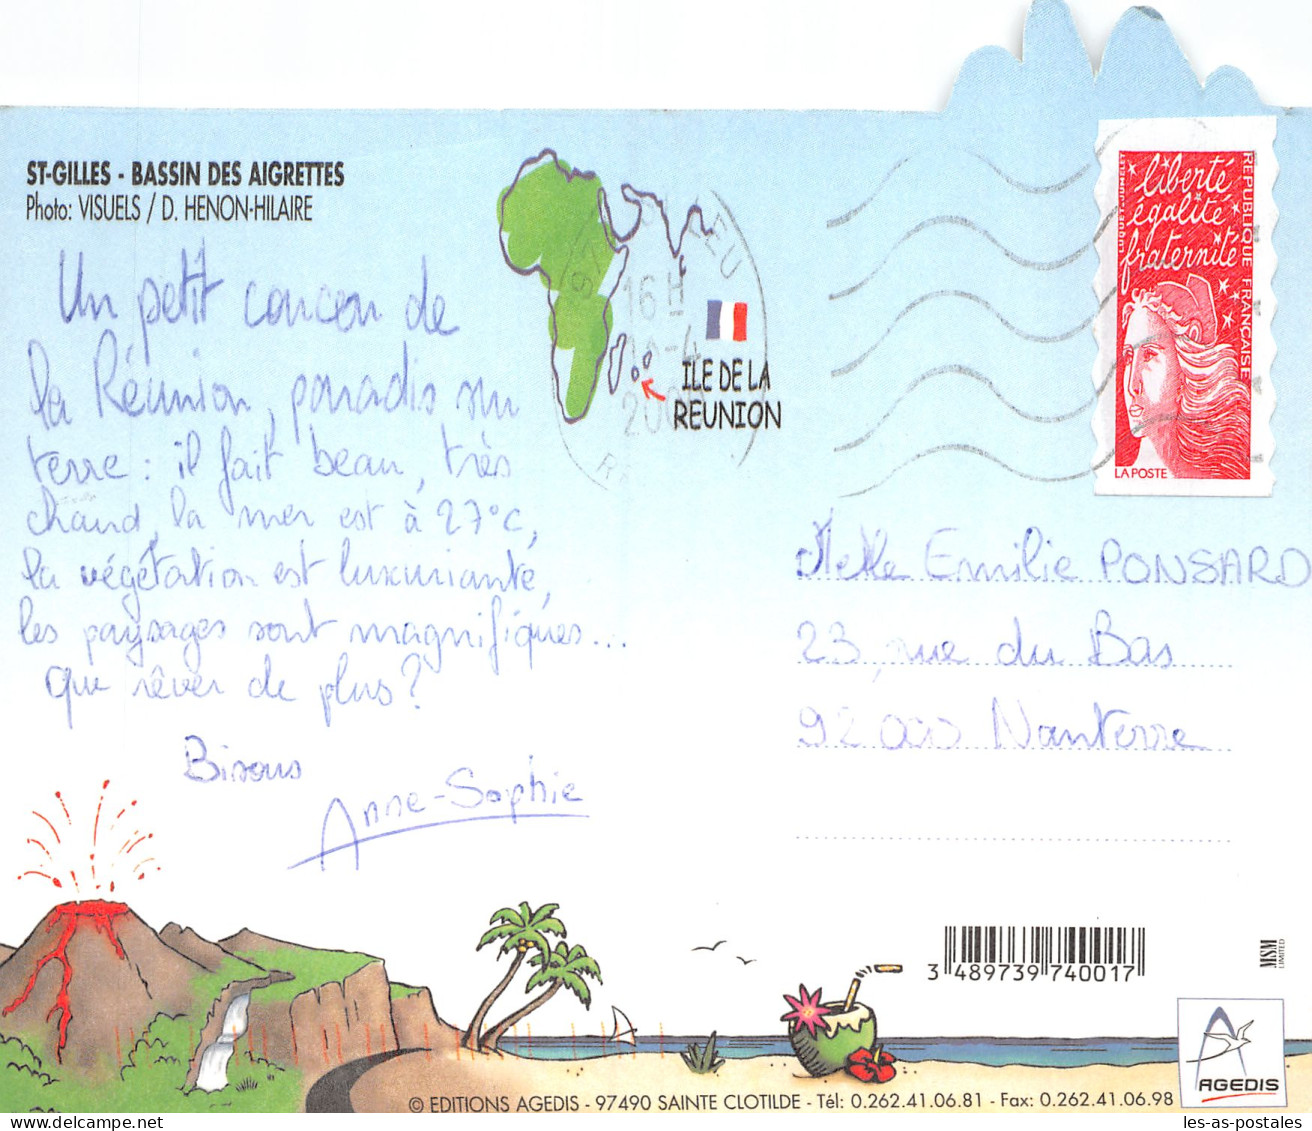 ST-GILLES - BASSIN DES AIGRETTES
Photo: VISUELS / D. HENON-HILAIRE
Un petit coucou de
la Réunion, paradis sur
terre : il fait beau, très
chaud, la mer est à 27°C,
la végétation est luxuriante,
les paysages sont magnifiques...
que rêver de plus ?
Bisous
Anne-Sophie
16 H
-4
ILE DE LA
REUNION
liberté
égalité
fraternité
REPUBLIQUE FRANÇAISE
LUQUET-JUMELET
LA POSTE
Melle Emilie PONSARD
23, rue du Bas
92000 Nanterre
3 489739 740017
MSM
LIMITED
AGEDIS
© EDITIONS AGEDIS - 97490 SAINTE CLOTILDE - Tél: 0.262.41.06.81 - Fax: 0.262.41.06.98
les-as-postales